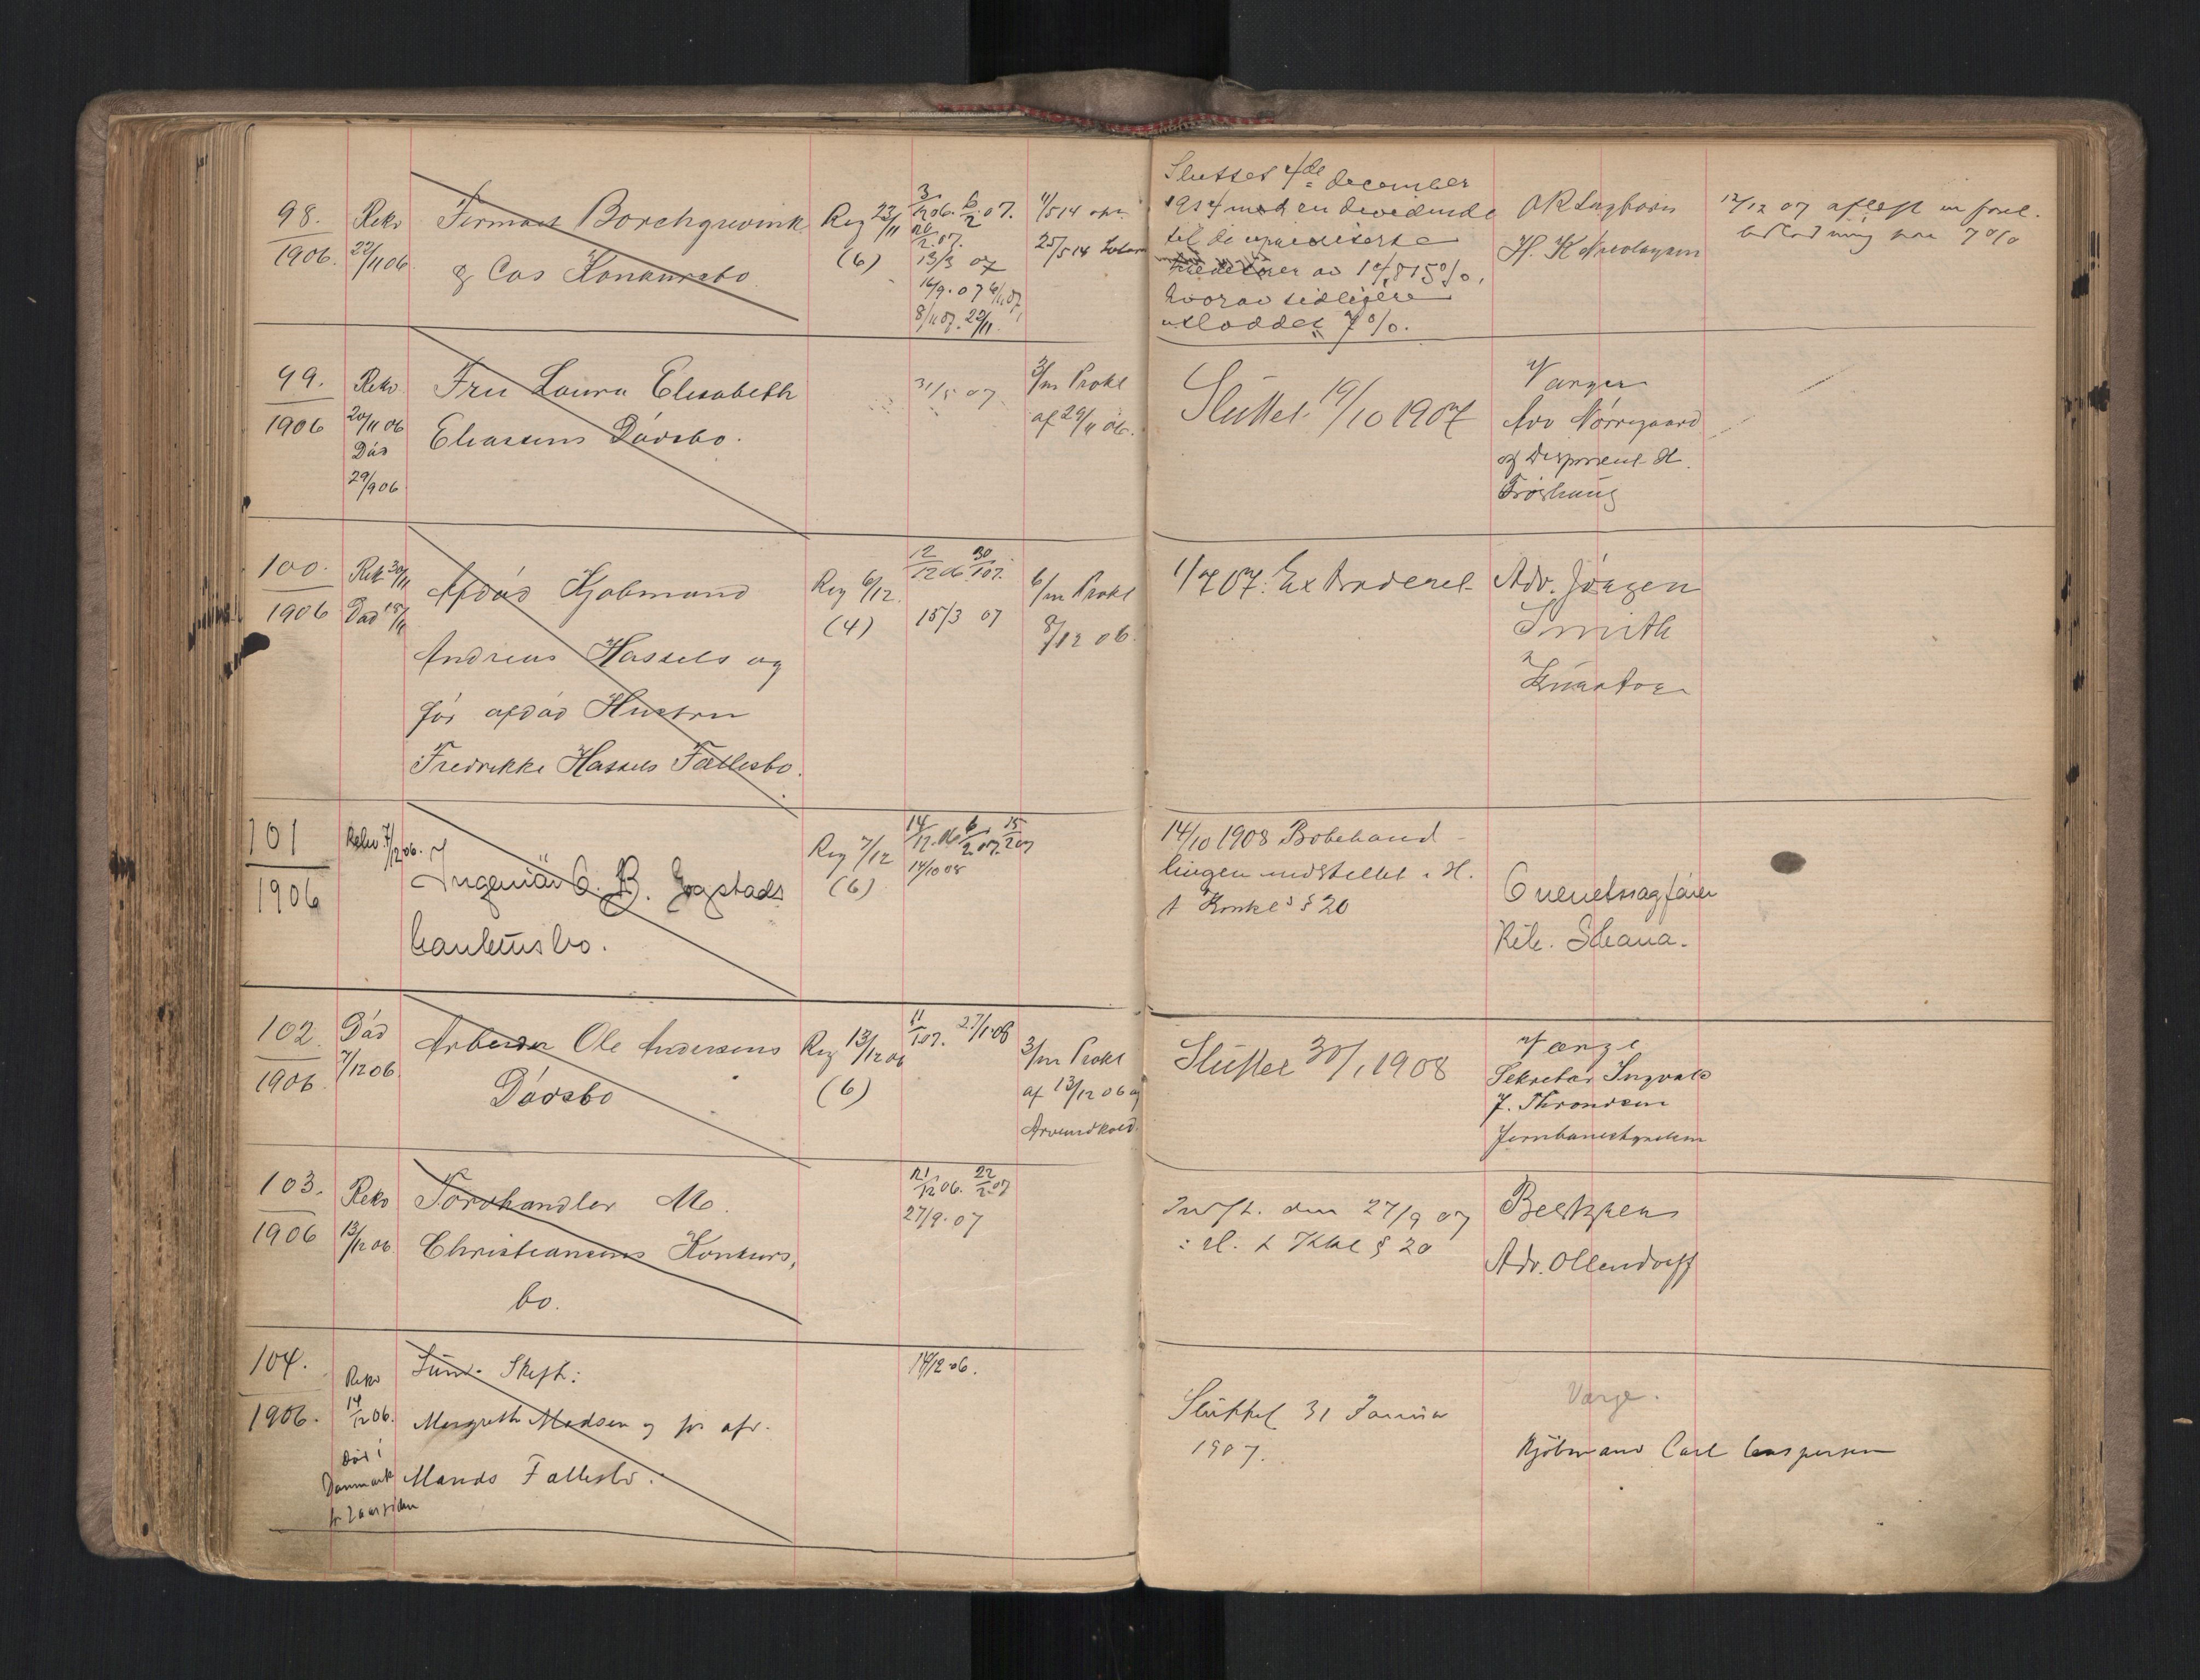 98.
1906.
Reko
22/11 06
Firmaet Borchgrevink
& Cos Konkursbo.
Reg 23/11
(6)
3/12 06. 6/2 07.
20/2 07.
13/3 07
16/9. 07
8/11 07. 22/11.
4/5 14
25/5 14
Sluttet 4de december
1914 med en dividende
til de upriviliserte
av 10,815%,
hvorav tidligere
utloddet 7%.
H. K. Nicolaysen
12/12 07 aflagt en forel.
utlodning paa 7%
99.
1906
Reko
20/11 06
Död
29/9 06
Fru Laura Elisabeth
Eliassens Dödsbo.
31/5 07
3/m Prokl
af 29/11 06.
Sluttet 19/10 1907
Verger
Adv Nörregaard
og Disponent H.
Fröshaug
100.
1906
Rek 30/11
Död
Afdöd Kjöbmand
Andreas Hassels og
för afdöd Hustru
Fredrikke Hassels Fællesbo.
Reg 6/12.
(4)
12/12 06 30/1 07.
15/3 07
6/m Prokl
8/12 06.
1/7 07. Extraderet
Adv. Jörgen
Smith
Kurator
101
1906
Rekv 7/12 06.
Ingeniör C. B. Gogstads
konkursbo.
Reg 7/12
(6)
14/12 06 6/2 07. 15/2 07
14/10 08
14/10 1908 Bobehand
lingen indstillet i H.
t Konkl's § 20
Overretssagförer
102.
1906
Död
7/12 06
Arbeider Ole Andersens
Dödsbo
Reg 13/12 06
(6)
11/1 07. 27/1 08
3/m Prokl
af 13/12 06 og
Arveindkald.
Sluttet 30/1 1908
Verge
Sekretær Ingvald
J. Throndsen
Jernbanestyrelsen
103.
1906
Reko
13/12 06
Torvhandler M.
Christiansens Konkurs,
bo.
21/12 06. 22/2 07
27/9. 07
Indst. den 27/9 07
i H. t Kkl § 20
Adv. Ollendorff
104.
1906.
Reko
14/12 06.
Död i
Danmark
Sund. Skift:
Margrethe Madsen og för afd.
Mands Fællesbo.
14/12 06.
Sluttet 31 Januar
1907.
Verge.
Kjöbmand Carl Caspersen